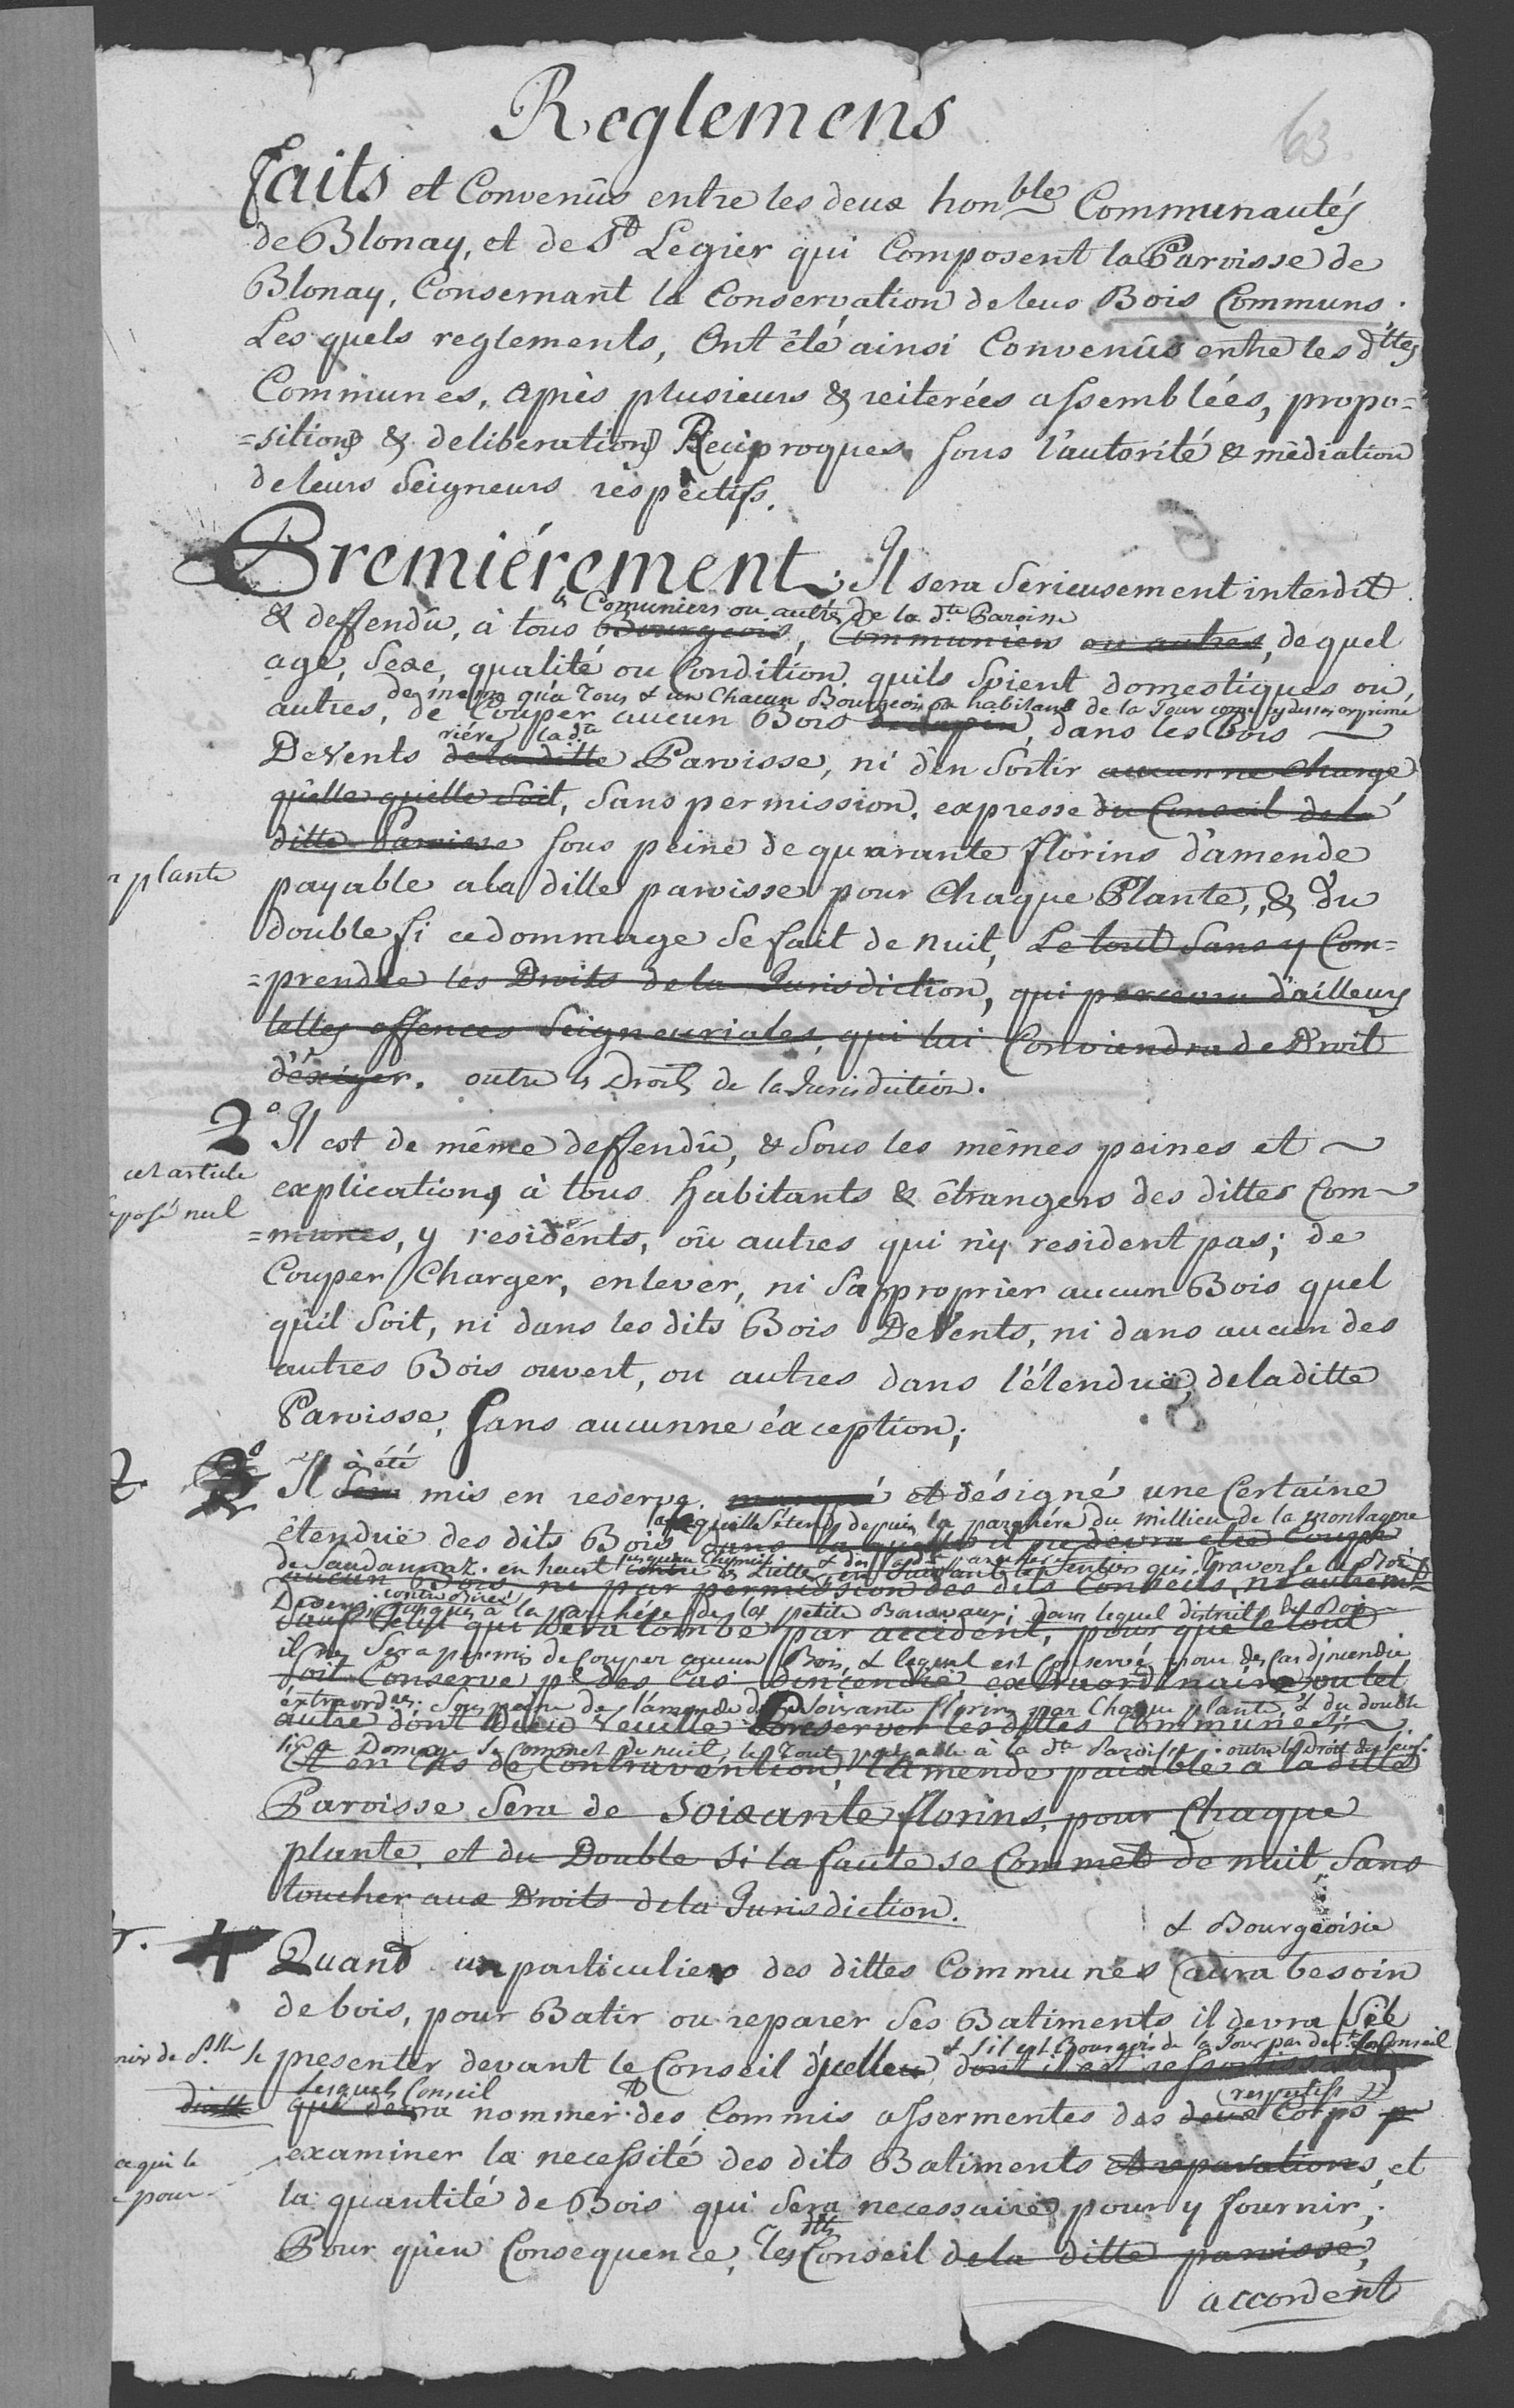 63
Reglemens
faits et Convenûs entre les deux hon^ble Communautés
de Blonay, et de S^t Legier qui Composent la Paroisse de
Blonay, Consernant la Conservation de leus Bois Communs.
Les quels reglements, Ont êté ainsi Convenûs entre les d^ttes
Communes, après plusieurs & reiterées assemblées, propo=
=sitions & deliberations Reciproques sous l'autorité & mèdiation
de leurs Seigneurs respèctifs.
Premiérement; Il sera Serieusement interdit
les Comuniers ou autres de la d^te Paroisse
& deffendu, à tous Bourgeois, Communiers ou autres, de quel
age, Sexe, qualité ou Condition, quils soient domestiques ou,
de meme qu'a Tous & un Chacun Bourgeois ou habitans de la Tour comme cy dessus exprimé
autres, de Couper aucun Bois de Sapin, dans les Bois
riére la d^te
De Vents de la ditte Paroisse, ni d'en Sortir aucunne Charge
quelle quelle soit, Sans permission, expresse du Conseil de la
ditte Paroisse sous peine de quarante florins d'amende
n plante
payable a la ditte paroisse pour Chaque Plante, & du
double si ce dommage se fait de nuit, Le tout Sans y Com=
=prendre les Droits de la Jurisdiction, qui percevra d'ailleurs
telles offences Seigneuriales, qui lui Conviendra de Droit
d'éxiger. outre les Droits de la Jurisdiction.
2° Il est de même deffendû, & Sous les mêmes peines et
cet article
explications, à tous habitants & êtrangers des dittes Com
posé nul
=munes, y residents, oû autres qui n'y resident pas; de
Couper, Charger, enlever, ni Sapproprier aucun Bois quel
qu'il Soit, ni dans les dits Bois DeVents, ni dans aucun des
autres Bois ouvert, ou autres dans l'étenduë, de la ditte
Paroisse, Sans aucunne éxception;
à été
2. 3° Il Sera mis en reserve, marqué et désigné une Certaine
laquelle s'etend depuis la parchére du millieu de la montagne
êtenduë des dits Bois dans laquelle il ne devra etre Coupé
de Saudannaz. en haut jusqu'au Chemin Sentier qui traverse le Bois
aucun Bois ni par permission des dits Conseils, ni autrem^t
Devens, jusques à la parchére de la petite Bonavaux; dans lequel district de Bois
Sauf Celui qui Sera tombé par accident, pour que le tout
il ne Sera permis de Couper aucun Bois, & lequel est Conservé pour des Cas d'incendie
soit Conservé p^r des Cas d'incendie, extraordinaire ou tel
extraord^res. Sous peine de l'amende de Soixante florins par Chaque plante, & du double
autre dont Dieu Veuille Preserver les dittes Communes;
si ce Domage se Commet de nuit, le Tout payable à la d^te Paroisse. outre les Droits des Seig^rs.
Et en Cas de Contravention, l'Amende païable a la ditte
Paroisse Sera de Soixante florins, pour Chaque
plante, et du Double Si la faute se Commet de nuit, Sans
toucher aux Droits de la Jurisdiction.
& Bourgeoisie
4 Quand un particulier des dittes Communes aura besoin
de bois, pour Batir ou reparer Ses Batiments il devra
& s'il est Bourgeois de la Tour par dev^t Le Conseil
presenter devant le Conseil d'icelles dont il est ressortissant
Lesquels Conseil respectifs
qui devra nommer des Commis assermentes des deux Corps p^r
examiner la necessité des dits Batiments et reparations, et
ce qui le
pour
la quantité de Bois qui Sera necessaire pour y fournir;
dits
Pour qu'en Consequence, les Conseil de la ditte paroisse,
accordent